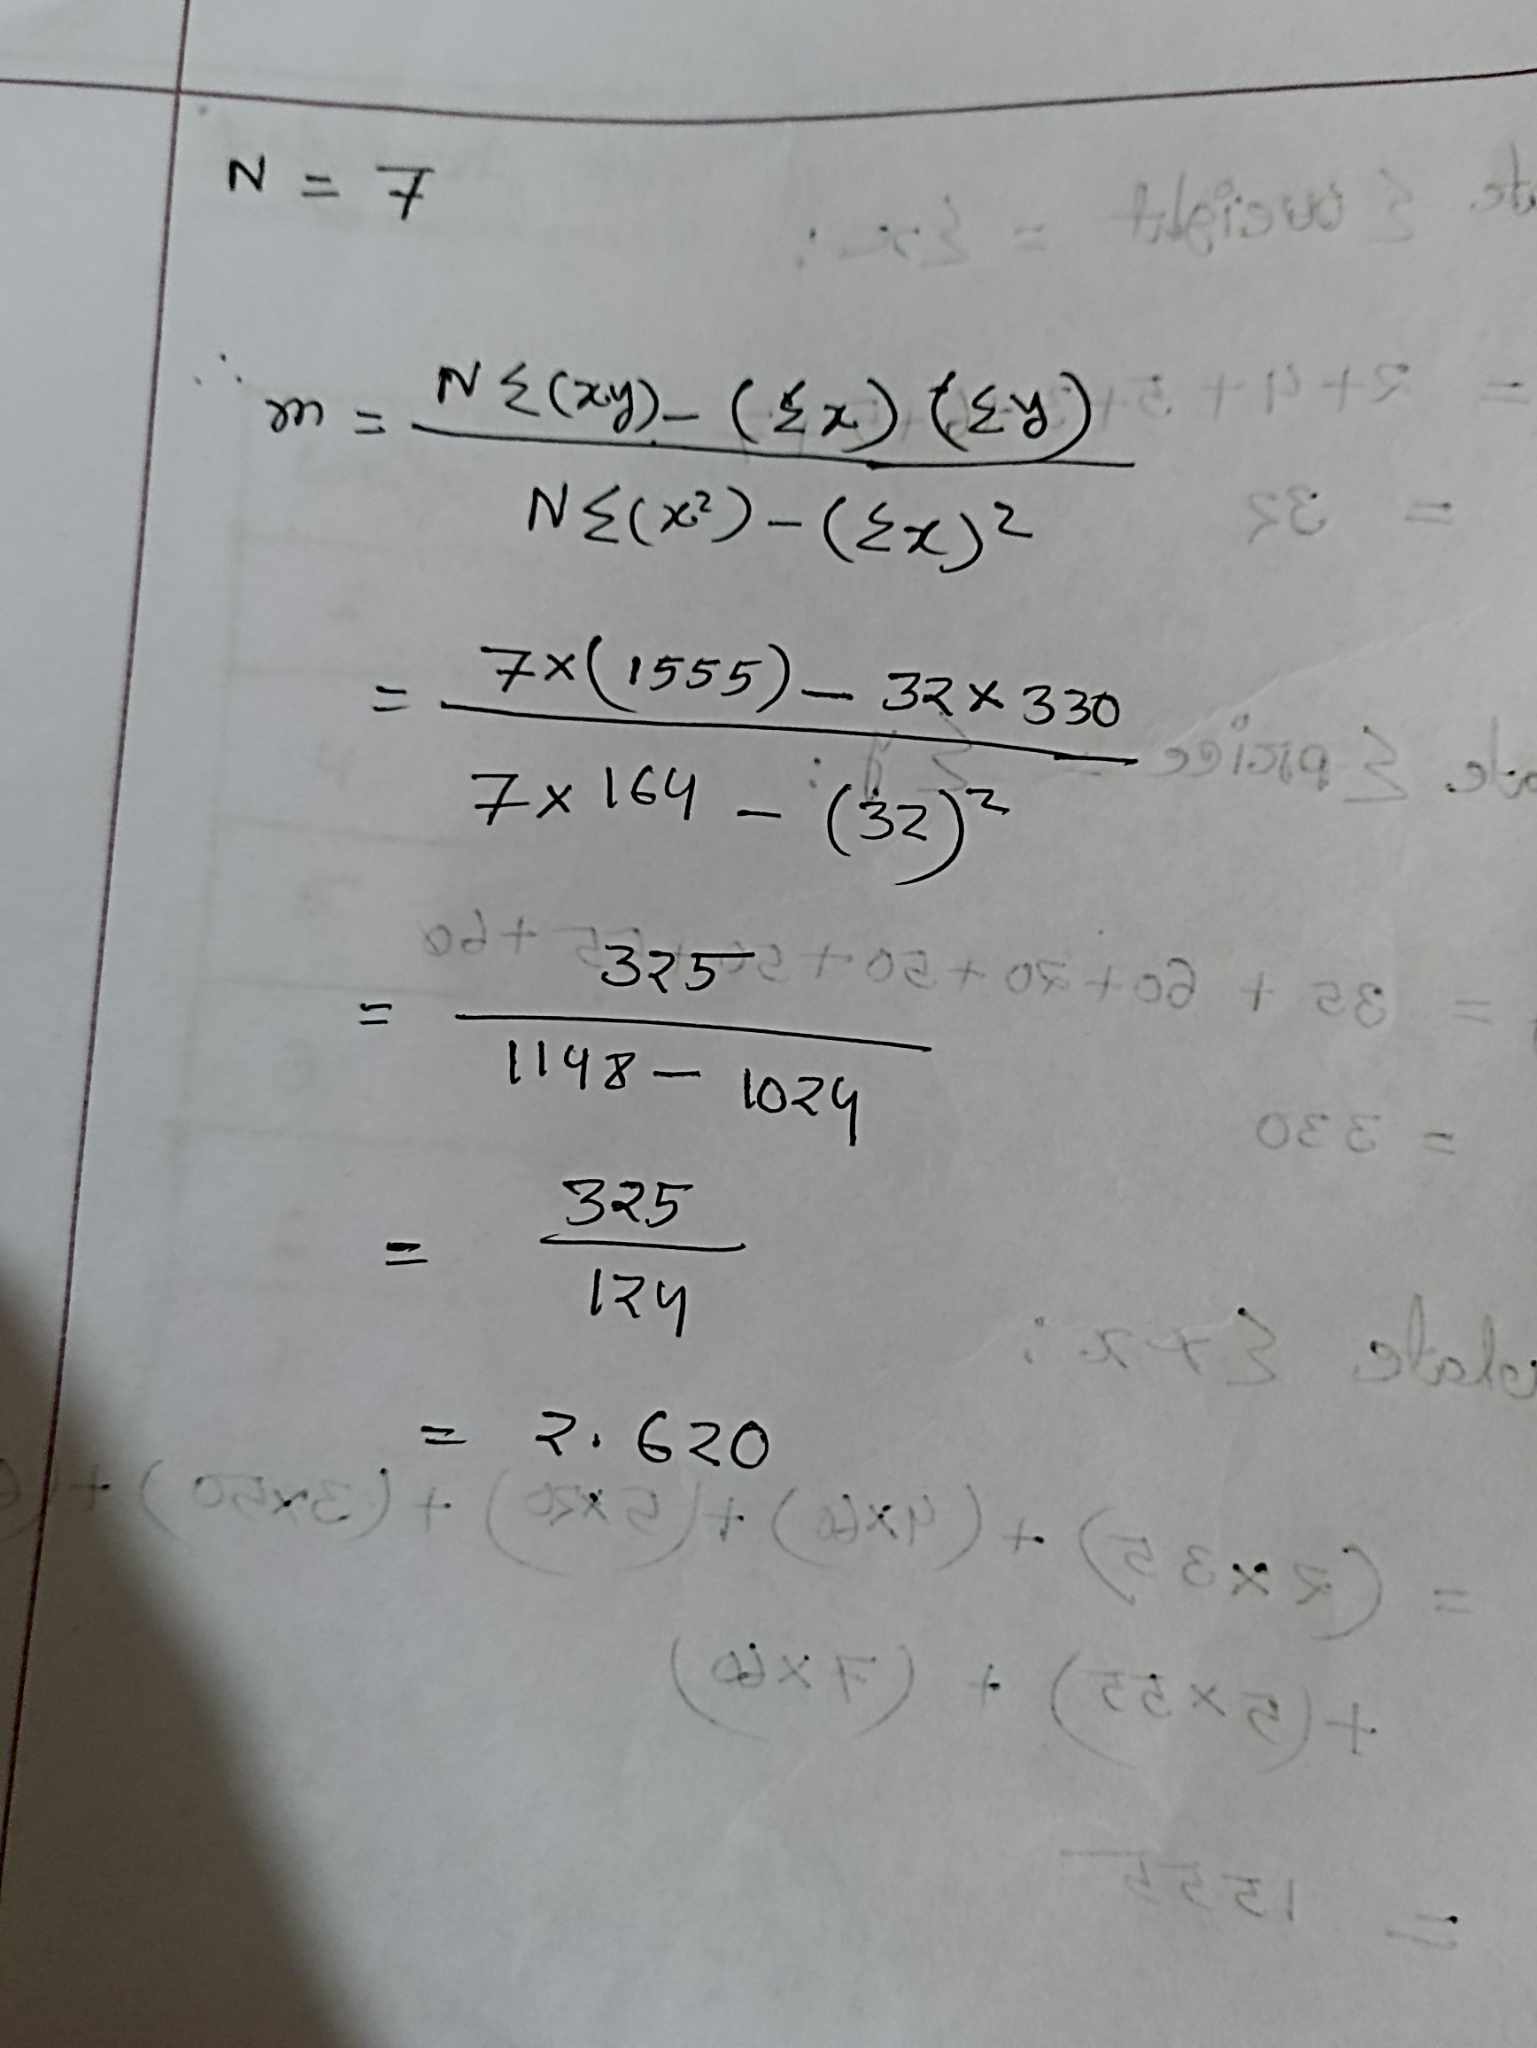 N = 7
∴ m = N Σ(xy) - (Σx) (Σy)
NΣ(x²) - (Σx)²
= 7×(1555) - 32 × 330
7 × 164 - (32)²
= 325
1148 - 1024
= 325
124
= 2.620